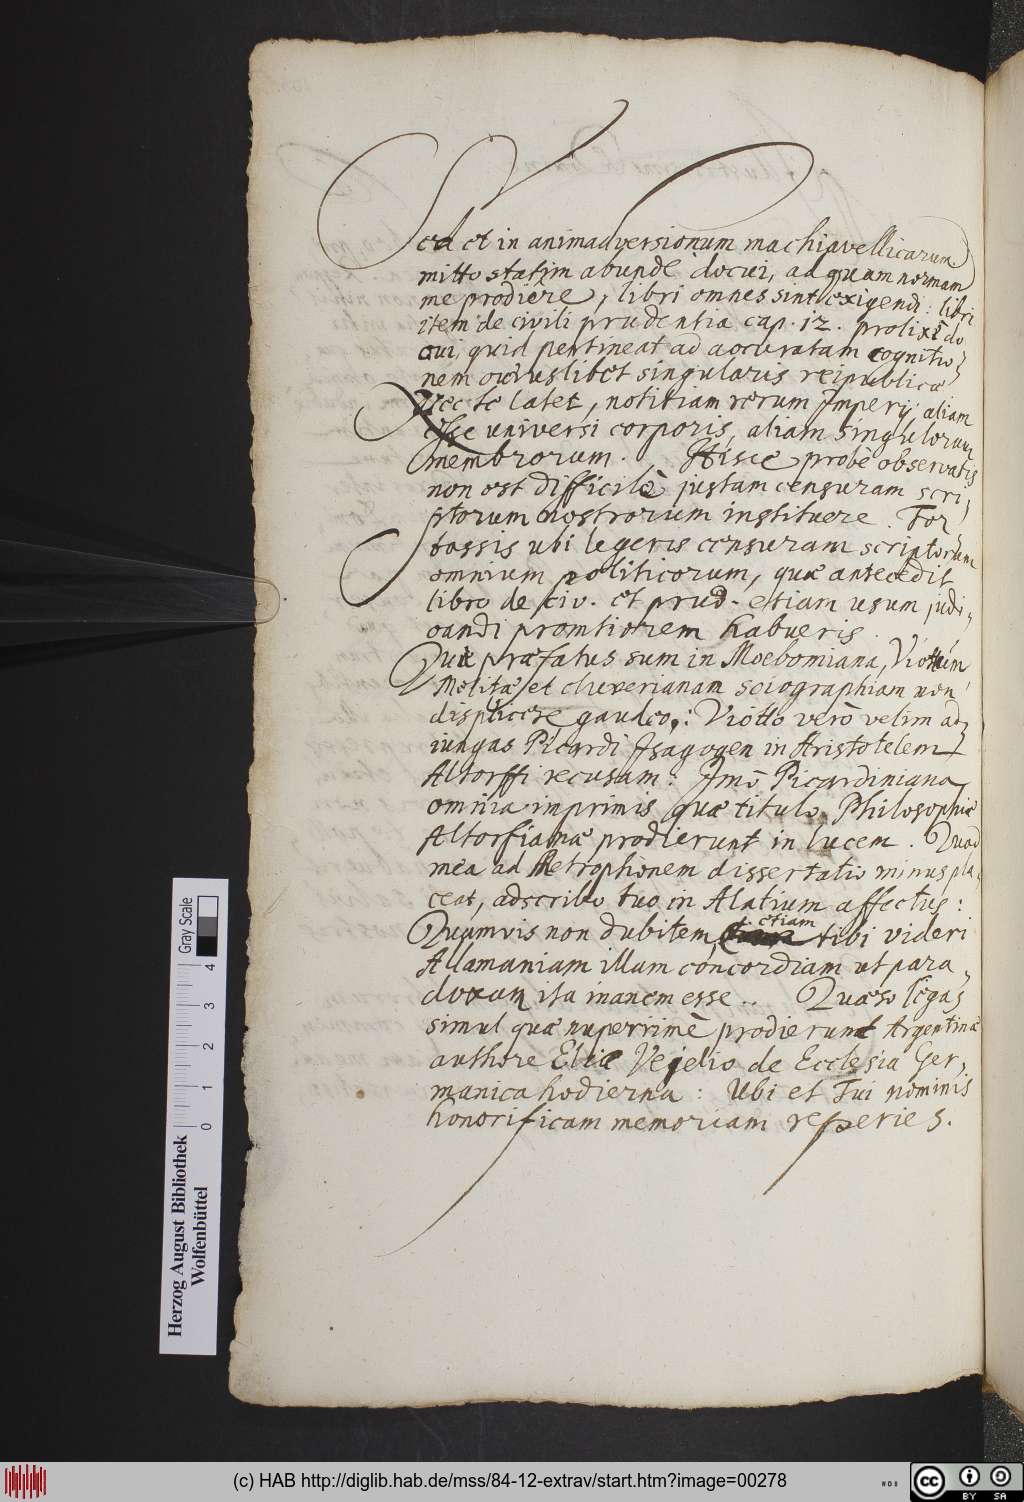 Sed et in animadversionum machiavellicarum
mitto statim abundè docui, ad quam normam
me prodiere, libri omnes sint exigendi: libri
item de civili prudentia cap. 12. prolixè do
cui, quid pertineat ad accuratam cognitio
nem cuiuslibet singularis reipublicæ
Nec te latet, notitiam rerum Imperij aliam
esse universi corporis, aliam singulorum
membrorum. Hisce probè observatis
non est difficilè justam censuram scri,
ptorum nostrorum instituere. For
tassis ubi legeris censuram scriptorum
omnium politicorum, quæ antecedit
libro de civ. et prud. etiam usum judi,
candi promtiorem habueris.
Quæ præfatus sum in Moebomiana, Viottum
Molitæ et cluverianam sciographiam non
displicere gaudeo,: Viotto verò velim ad
iungas Picardi Isagogen in Aristotelem
Altorffi recusam. Imò Picardiniana
omnia inprimis quæ titulo Philosophiæ
Altorfianæ prodierunt in lucem. Quod
mea ad Metrophonem dissertatio minus pla,
ceat, adscribo tuo in Alatium affectus:
etiam
Quamvis non dubitem, tibi videri
Allamaniam illam concordiam ut para,
doxam ita inanem esse.. Quæso legas
simul quæ nuperrimè prodierunt Argentinæ
authore Eliæ Vejelio de Ecclesia Ger,
manica hodierna: Ubi et Tui nominis
honorificam memoriam reperies.
Herzog August Bibliothek
Wolfenbüttel
0 1 2 3 4
Gray Scale
(c) HAB http://diglib.hab.de/mss/84-12-extrav/start.htm?image=00278
cc BY SA